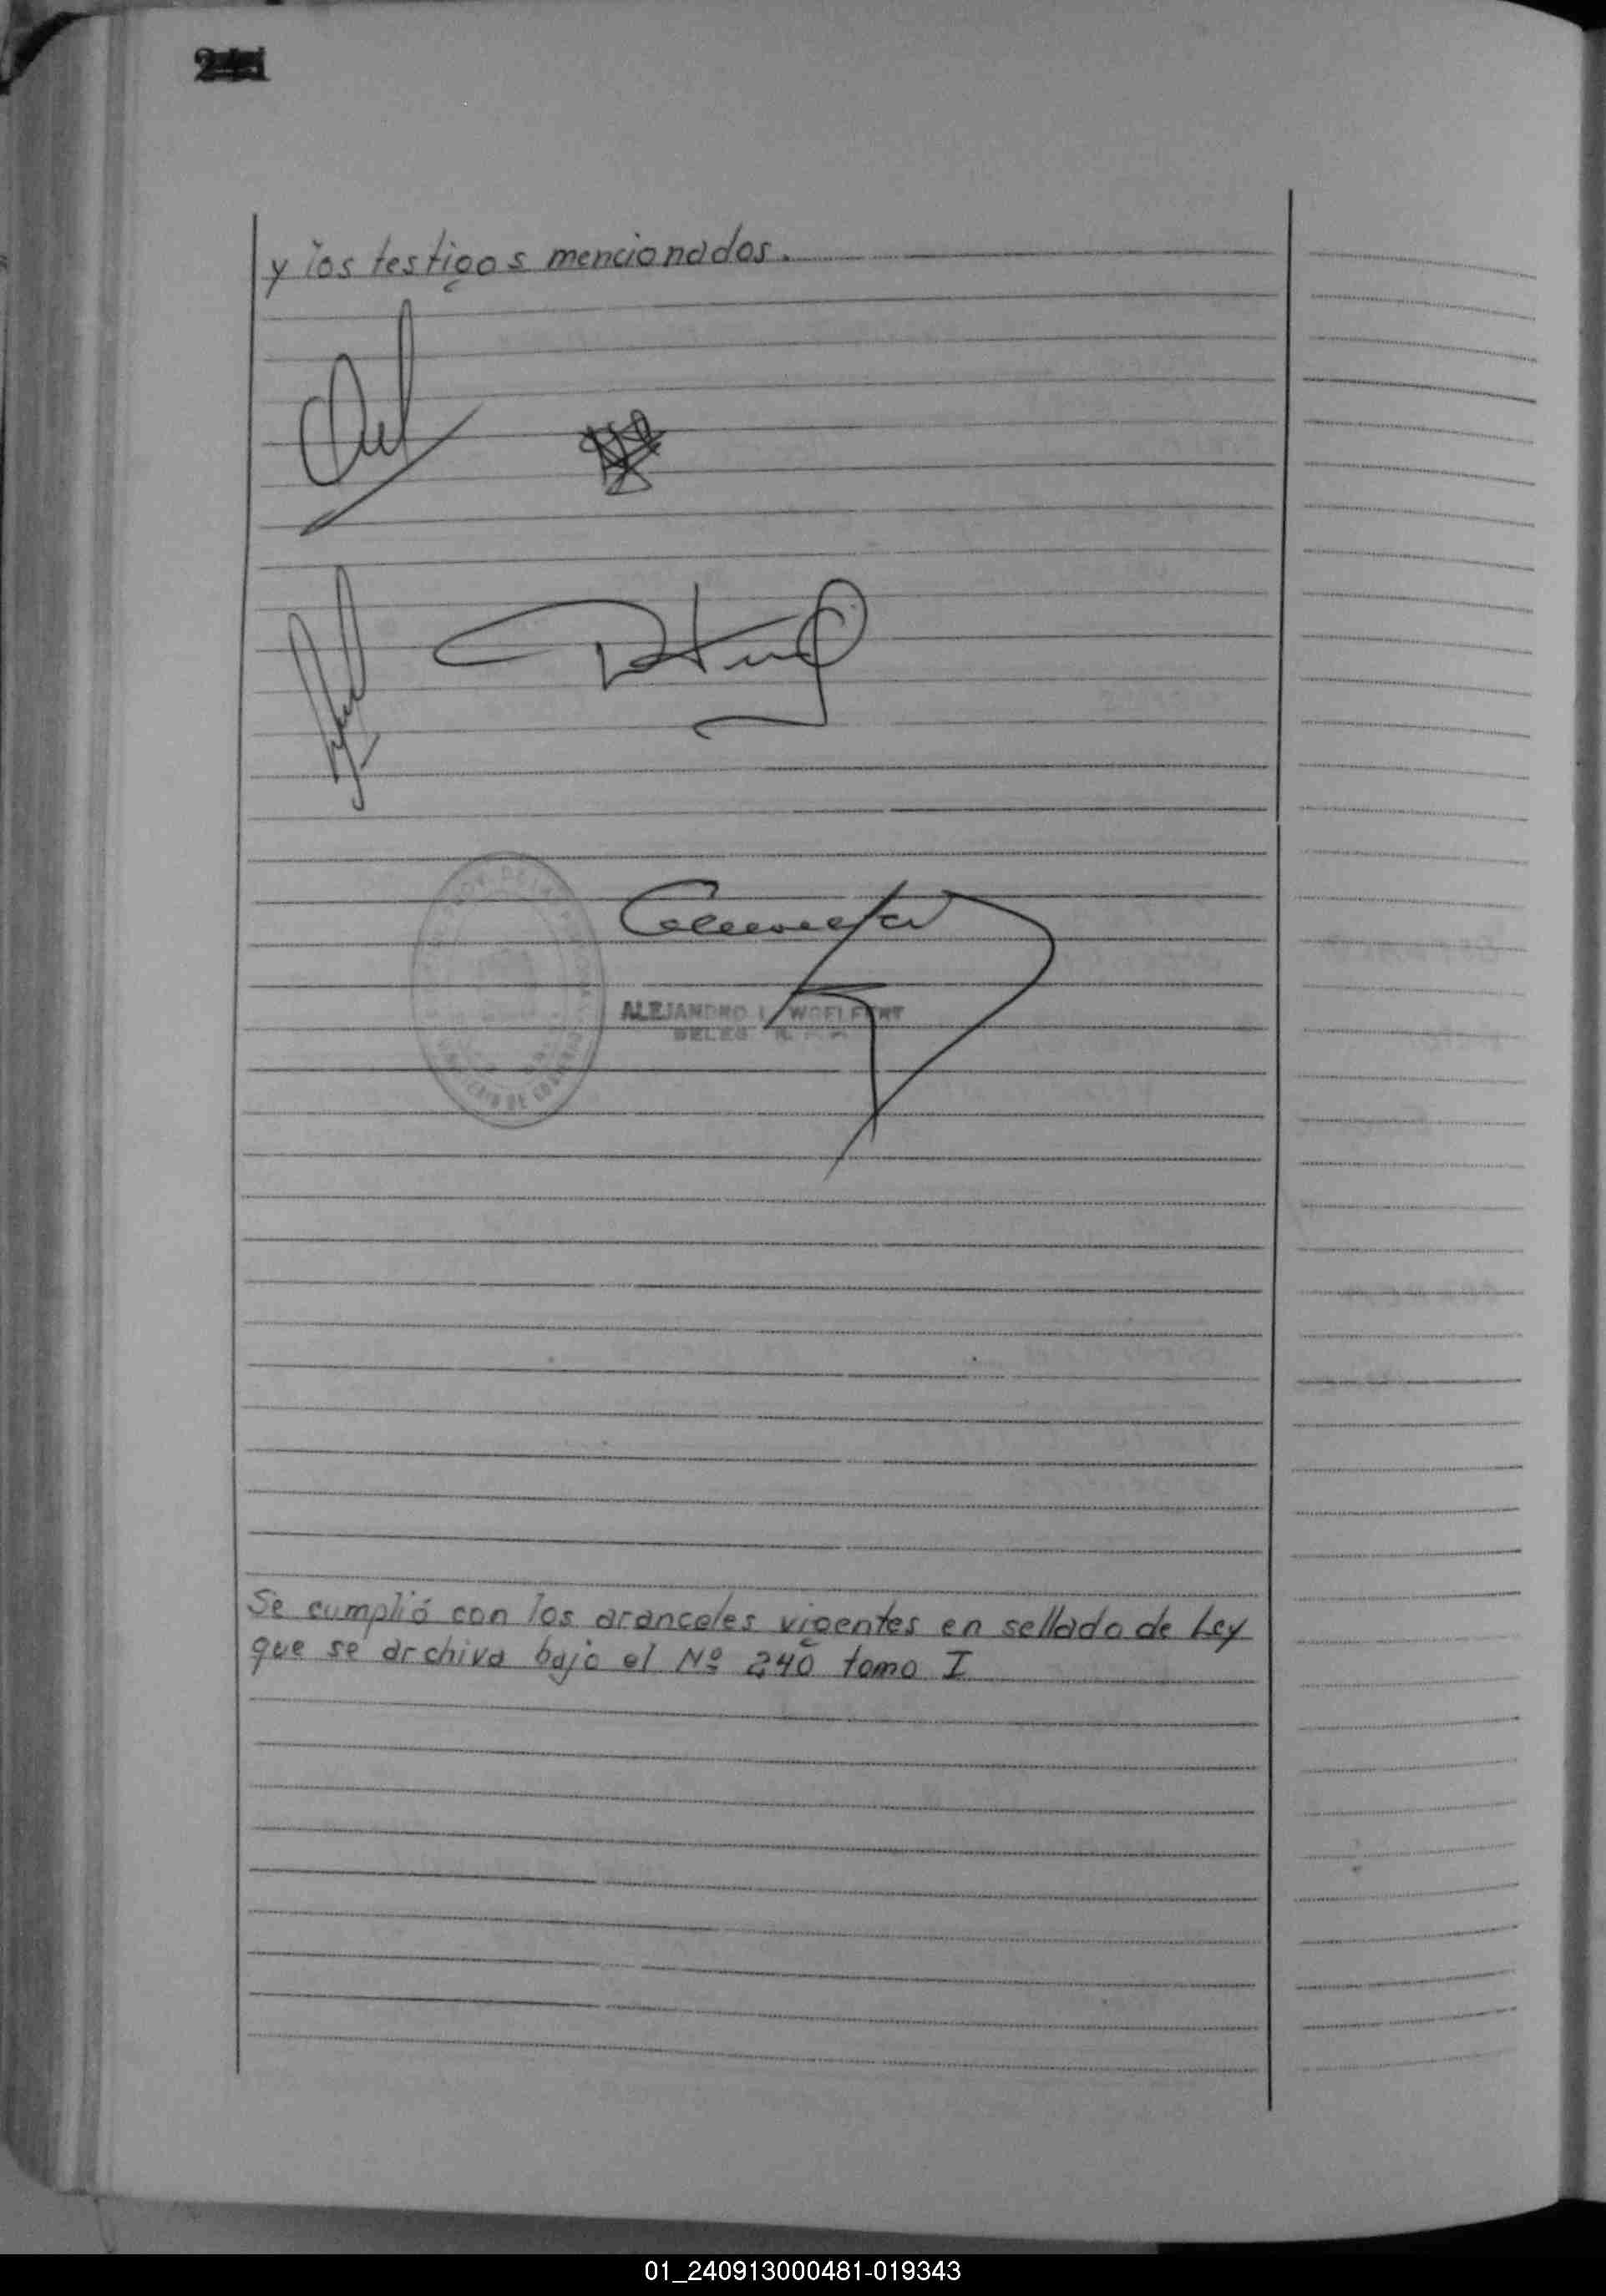 y los testigos mencionados.
ALEJANDRO L. WOELFERT
DELEG
Se cumplió con los aranceles vigentes en sellado de Ley
que se archiva bajo el Nº 240 tomo I
01_240913000481-019343